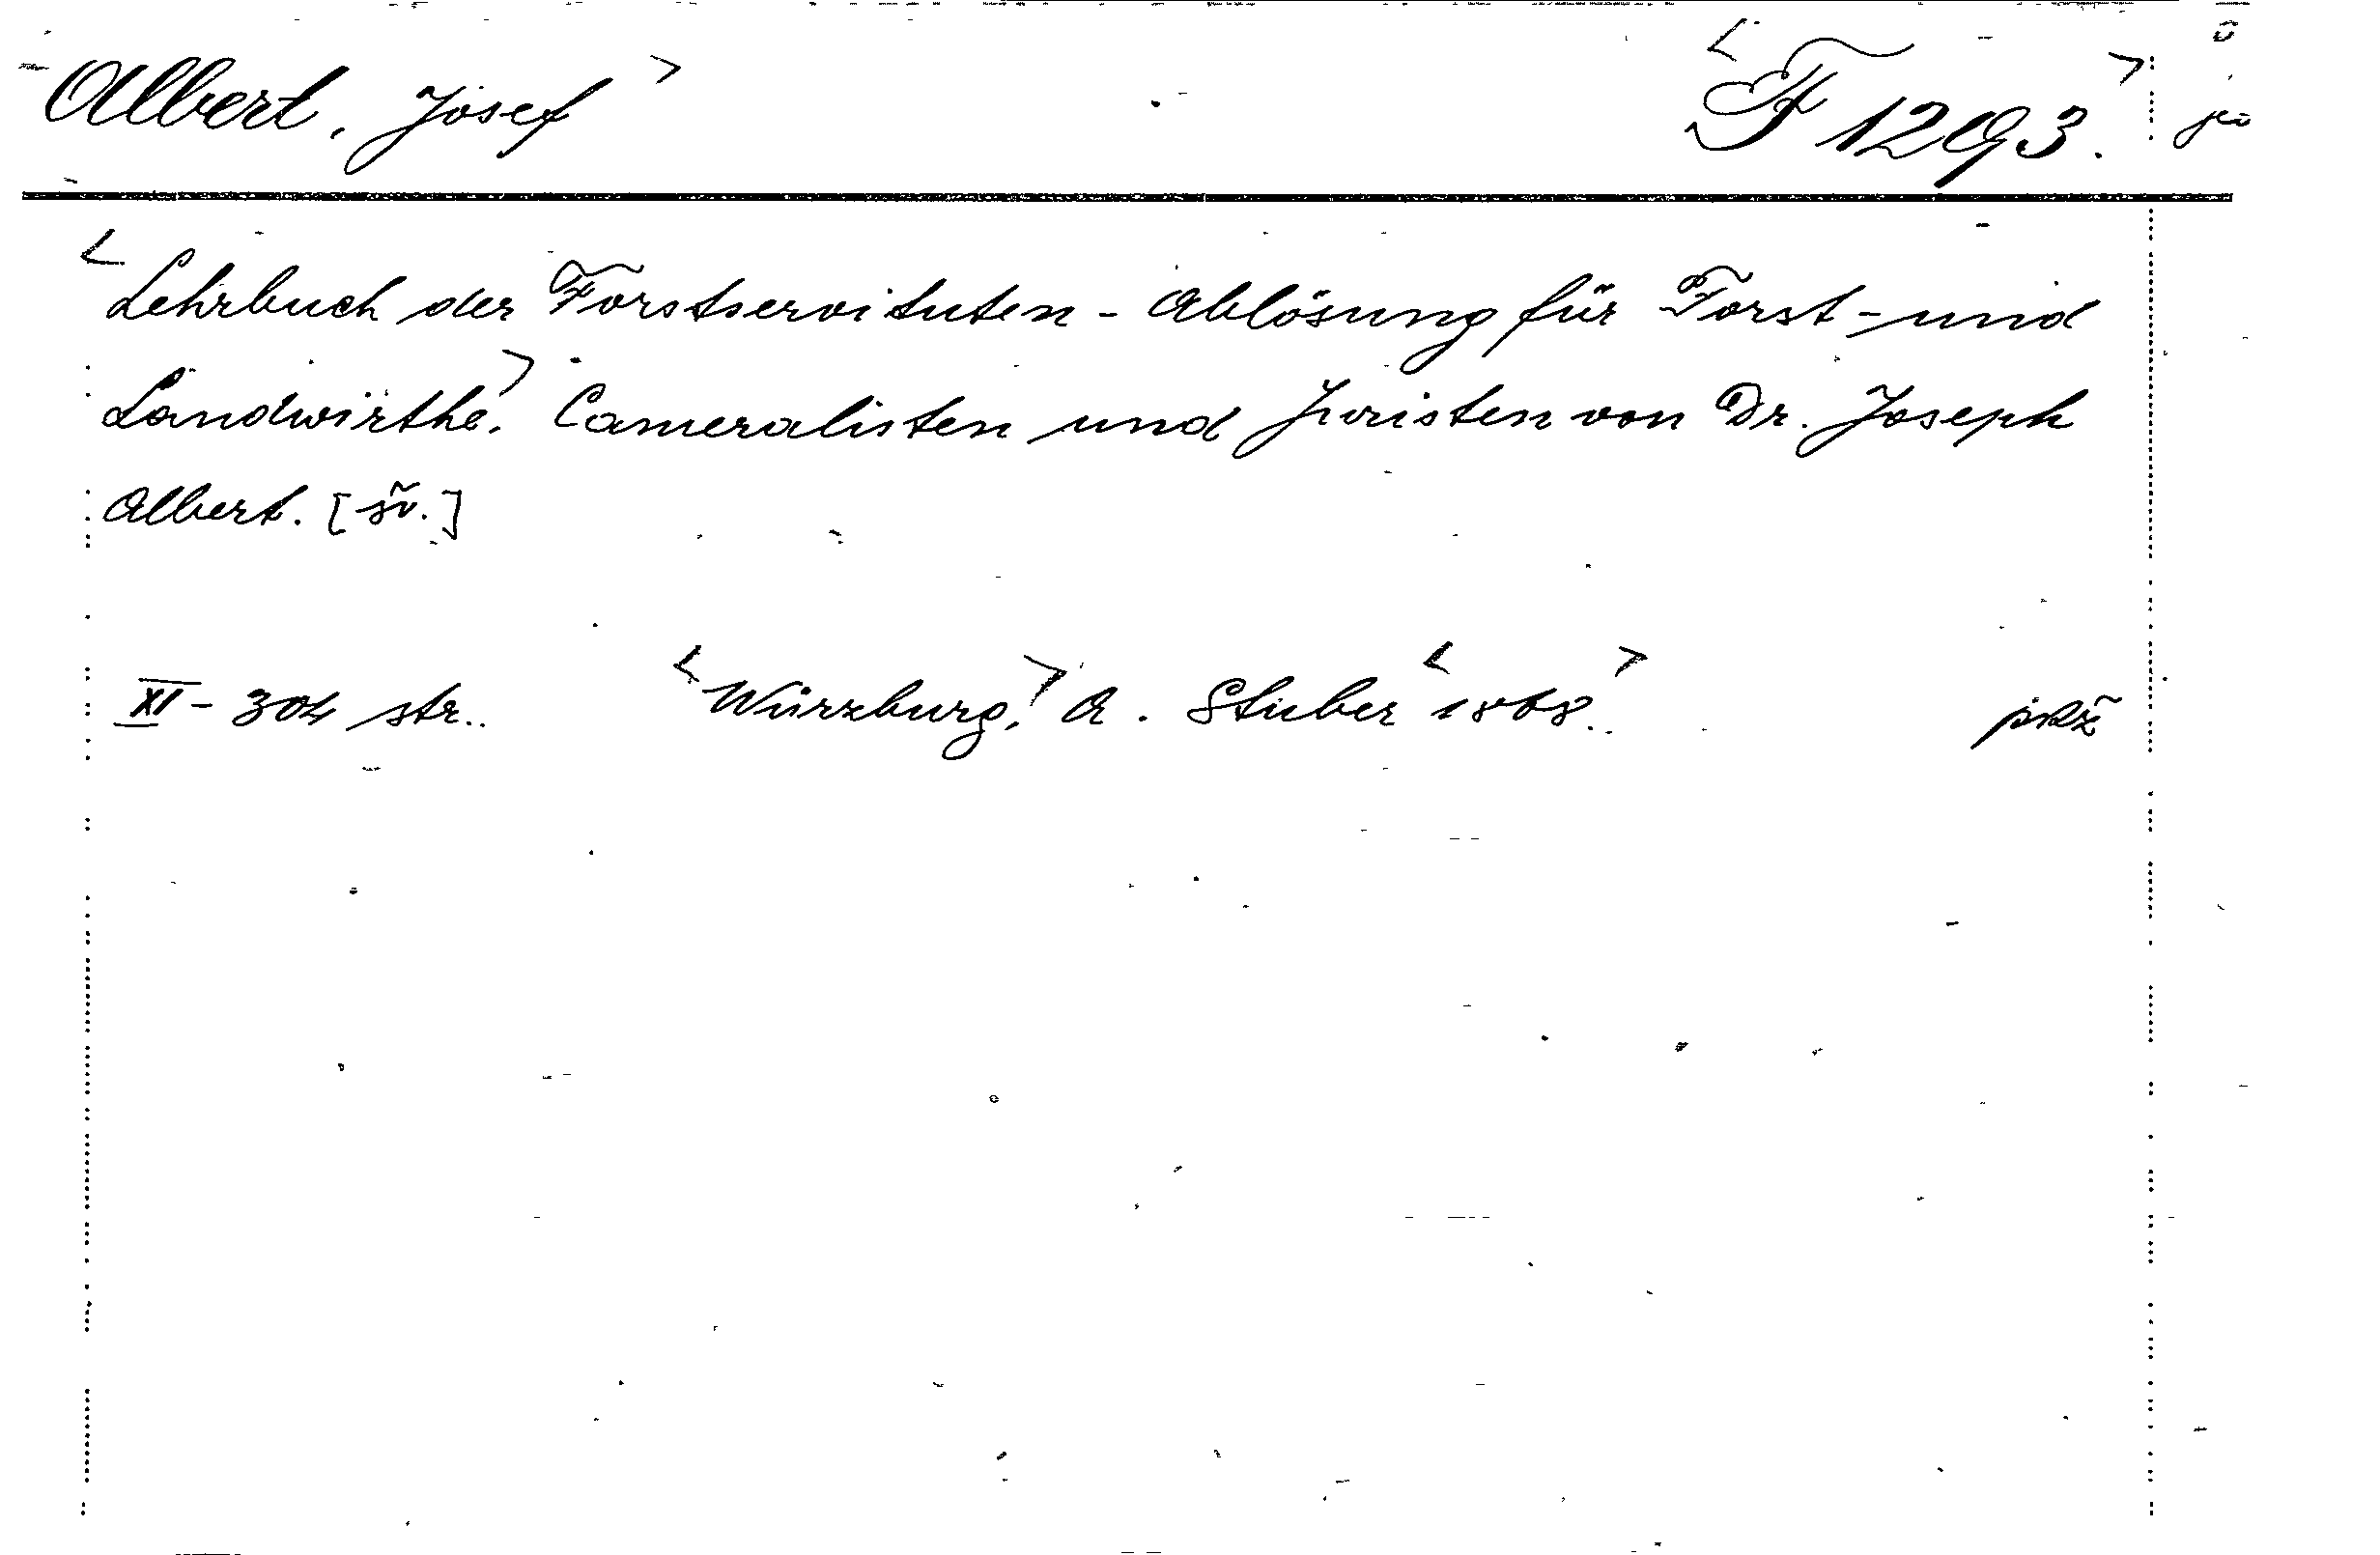 Albert, Josef > < F 1293. >
< Lehrbuch der Forstservituten - Ablösung für Forst - und
Landwirthe, > Cameralisten und Juristen von Dr. Joseph
Albert. [šv.]
XI - 304 str.. < Würzburg, > A. Stuber < 1868. >